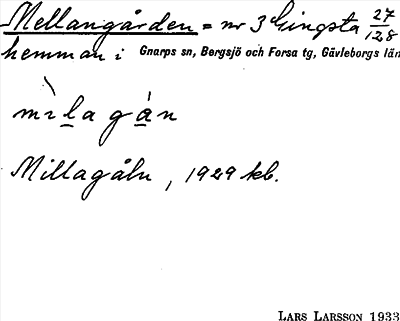 Mellangården = nr 3 Gingsta 27/128
hemman i Gnarps sn, Bergsjö och Forsa tg, Gävleborgs län
mìlagán
Millagåln, 1929 kb.
LARS LARSSON 1933